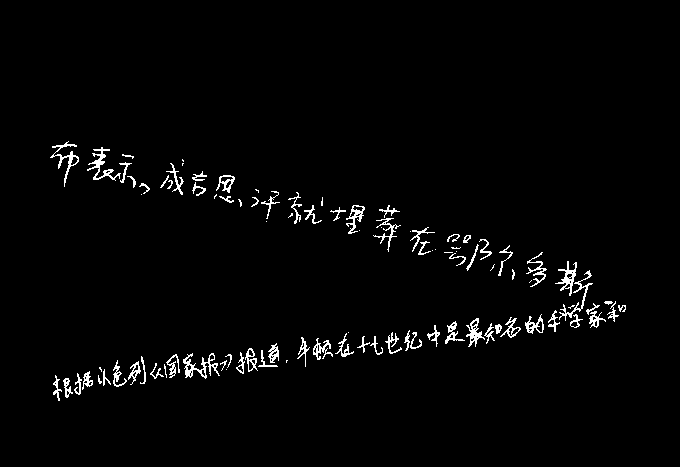 布表示,成吉思汗就埋葬在鄂尔多斯
根据以色列《国家报》报道,牛顿在十七世纪中是最知名的科学家和